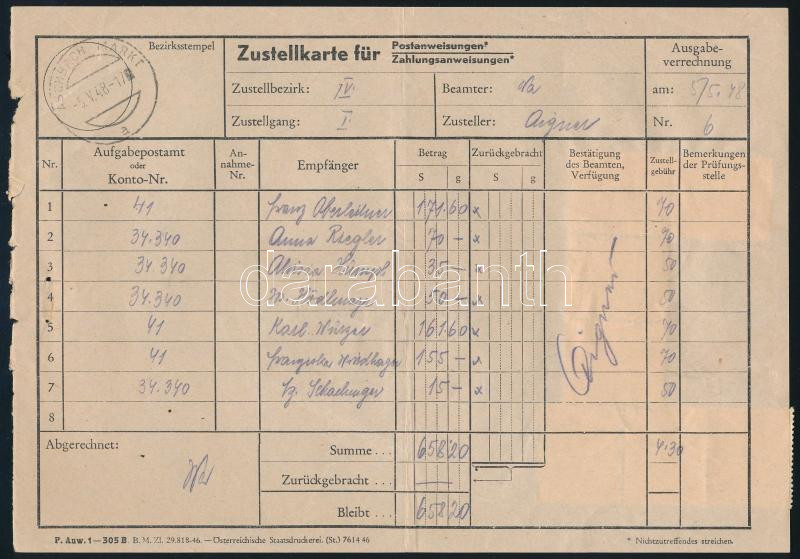 Bezirksstempel
ASCHBACH MARKT
-5.V.48-17
a
Zustellkarte für Postanweisungen*
Zahlungsanweisungen*
Ausgabe-
verrechnung
Zustellbezirk: IV.
Beamter:
am: 5/5.48
Zustellgang: I.
Zusteller: Aigner
Nr. 6
Nr.
Aufgabepostamt
oder
Konto-Nr.
An-
nahme-
Nr.
Empfänger
Betrag
S g
Zurückgebracht
S g
Bestätigung
des Beamten,
Verfügung
Zustell-
gebühr
Bemerkungen
der Prüfungs-
stelle
1 41 Franz Oberleitner 171.60 x 70
2 34.340 Anna Riegler 70 – x 70
3 34.340 Aloisia 35 – x 50
4 34.340 50 – x 50
5 41 Karl Wurzer 161.60 x 70
6 41 155 – x 70
7 34.340 15 – x 50
8
Aigner
darabanth
Abgerechnet:
Summe . . . 658 20 4.30
Zurückgebracht . . . —
Bleibt . . . 658 20
P. Anw. 1—305 B B. M. Zl. 29.818-46. — Österreichische Staatsdruckerei. (St.) 7614 46
* Nichtzutreffendes streichen.